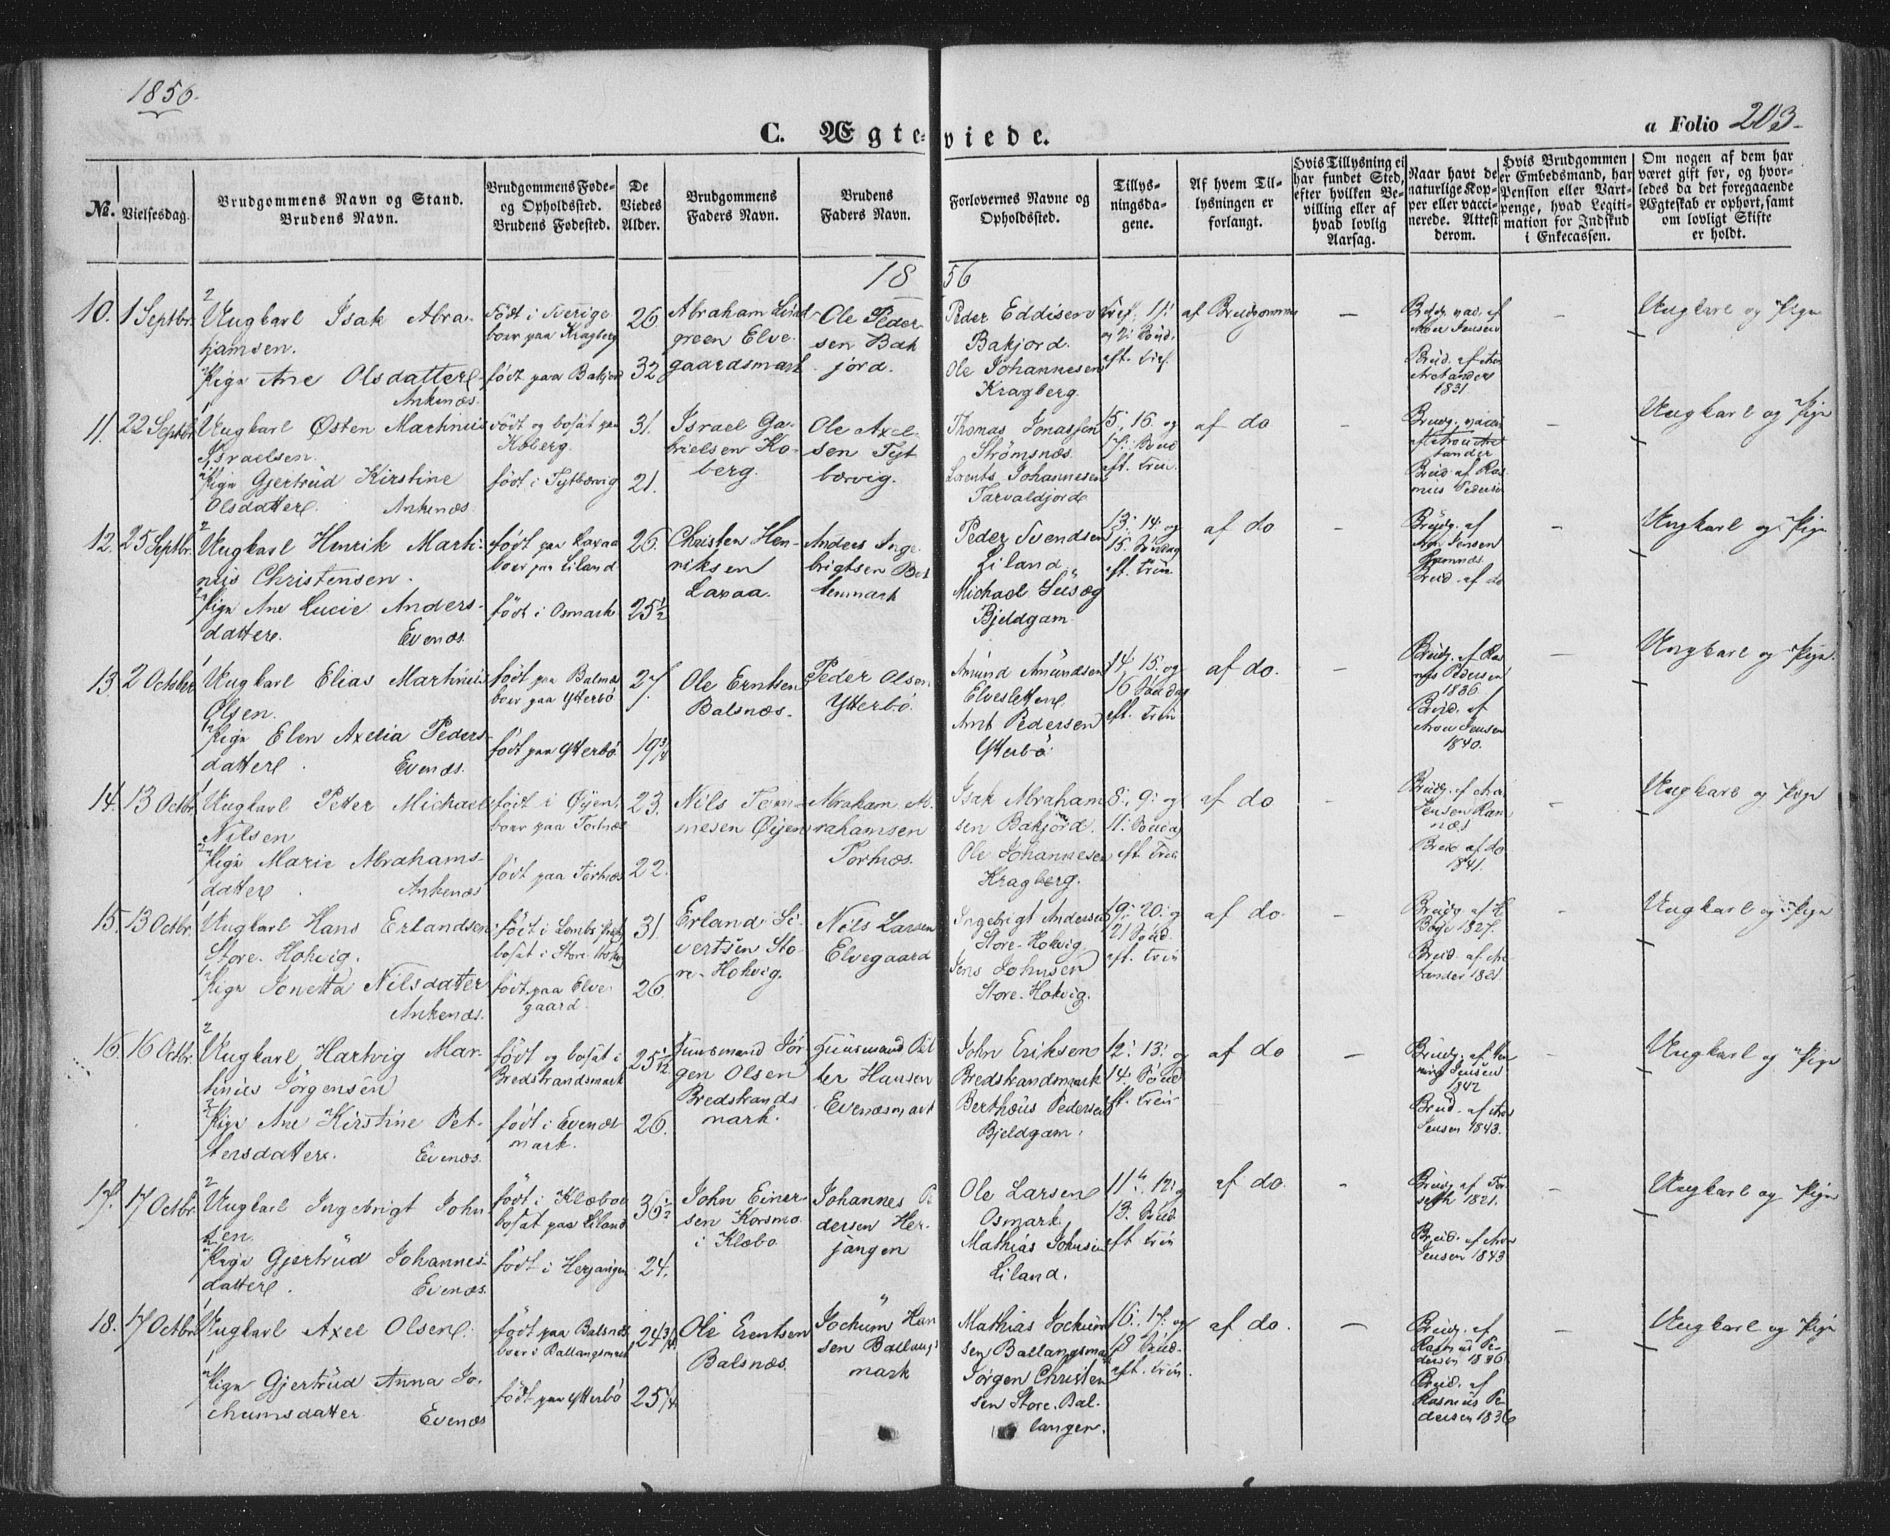 1856.
C. Ægteviede.
a Folio 203-
No.
Vielsesdag.
Brudgommens Navn og Stand.
Brudens Navn.
Brudgommens Føde-
og Opholdssted.
Brudens Fødested.
De
Viedes
Alder.
Brudgommens
Faders Navn.
Brudens
Faders Navn.
Forlovernes Navne og
Opholdssted.
Tillys-
ningsda-
gene.
Af hvem Til-
lysningen er
forlangt.
Hvis Tillysning ei
har fundet Sted,
efter hvilken Be-
villing eller af
hvad lovlig
Aarsag.
Naar havt de
naturlige Kop-
per eller vacci-
nerede. Attest
derom.
Hvis Brudgommen
er Embedsmand, har
Pension eller Vart-
penge, hvad Legiti-
mation for Indskud
i Enkecassen.
Om nogen af dem har
været gift før, og hvor-
ledes da det foregaaende
Ægteskab er ophørt, samt
om lovligt Skifte
er holdt.
1856
10. 1 Septbr.
Ungkarl Isak Abra-
hamsen.
Pige Ane Olsdatter
Ankenæs.
Født i Sverige
boer paa Kragberg
født paa Bakjord
26
32
Abraham Lind
green Elve-
gaardsmark
Ole Peder
sen Bak
jord.
Peder Eddisen
Bakjord.
Ole Johannesen
Kragberg.
af Brudgommen
—
1831.
—
Ungkarl og Pige
11. 22 Septbr.
Ungkarl Østen Martinus
Israelsen.
Pige Gjertrud Kirstine
Olsdatter. Ankenæs
født og bosat paa
Koberg.
født i Tytbærvig
31.
21.
Israel Ga-
brielsen Ko-
berg.
Ole Axel-
sen Tyt
bærvig.
Thomas Jonassen
Strømsnæs.
Lorents Johannesen
Tarvaldjord
15, 16. og
17. Sønd
eft. Trin.
af do
—
—
Ungkarl og Pige
12. 25 Septbr.
Ungkarl Henrik Marti-
nus Christensen.
Pige Ane Lucie Anders-
datter. Evenæs.
født paa Laxaa
boer paa Liland
født i Osmark
26.
25½
Christen Hen-
riksen
Laxaa.
Anders Inge
brigtsen
Peder Svendsen
Liland
Michael
Bjeldgam
13. 14. og
15. Søndag
eft. Trin
af do
—
Brud. af do
—
Ungkarl og Pige
13. 2 October
Ungkarl Elias Martinus
Olsen.
Pige Elen Axelia Peders-
datter. Evenæs.
født paa Balsnæs
boer paa Ytterbö
født paa Ytterbö
27.
19¾
Ole Erntsen
Balsnæs.
Peder Olsen
Ytterbö.
Amund Amundsen
Elvesletten
Arnt Pedersen
Ytterbö.
14. 15. og
16 Søndag
eft. Trin
af do.
—
1836
Brud. af
1840.
—
Ungkarl og Pige.
14. 13 Octbr.
Ungkarl Petter Michael
Nilsen
Pige Marie Abrahams-
datter. Ankenæs
født i Øijen
boer paa Tortnæs
født paa Tortnæs
23.
22.
Nils Tom-
mesen Øijen
Abraham Ab
rahamsen
Tortnæs.
Isak Abraham
sen Bakjord.
Ole Johannesen
Kragberg.
8. 9. og
11. Søndag
eft Trin
af do
—
Brud af do
1841.
—
Ungkarl og Pige
15. 13 Octbr.
Ungkarl Hans Erlandsen
Store-Hokvig.
Pige Jonetta Nilsdatter
Ankenæs.
bosat i Store-Hokvig
født paa Elve-
gaard.
31.
26.
Erland Si-
vertsen Sto-
re-Hokvig.
Nils Larsen
Elvegaard
Ingebrigt Andersen
Store-Hokvig.
Jens Johnsen
Store-Hokvig.
19. 20. og
21 Sønd.
eft. Trin
af do.
—
1827.
1821.
—
Ungkarl og Pige
16. 16 Octbr.
Ungkarl Hartvig Mar-
tinus Jörgensen
Pige Ane Kirstine Pet-
tersdatter. Evenæs.
født og bosat i
Bredstrandsmark
født i Evenæs
mark.
25½
26.
Huusmand Jör-
gen Olsen
Bredstrands
mark.
Huusmand Pet
ter Hansen
Evenæsmark
John Eriksen
Bredstrandsmark
Berthæus Pedersen
Bjeldgam.
12. 13. og
14. Sønd
eft. Trin
af do
—
1842
Brud. af
Jensen 1843.
—
Ungkarl og Pige
17. 17 Octbr.
Ungkarl Ingebrigt John
sen.
Pige Gjertrud Johannes-
datter. Evenæs.
født i Klæboe
bosat paa Liland
født i Herjangen
36½
24.
John Einer-
sen Korsmo
i Klæbo
Johannes Pe
dersen Her-
jangen
Ole Larsen
Osmark.
Mathias Johnsen
Liland.
11. 12. og
13. Sønd.
eft Trin
af do.
—
1821.
Brud. af
Jensen 1843
—
Ungkarl og Pige
18. 17 Octbr.
Ungkarl Axel Olsen.
Pige Gjertrud Anna Jo-
chumsdatter Evenæs
født paa Balsnæs
boer i Ballangsmark
født paa Ytterbö
24¾
25¼
Ole Erentsen
Balsnæs.
Jochum Han
sen Ballangs
mark
Mathias Jochum
sen Ballangsmark
Jörgen Christen
sen Store-Bal-
langen.
16. 17. og
18 Sønd.
eft. Trin.
af do.
—
Brudg. af
Rasmus Pe-
dersen 1836
Brud. af
Rasmus Pe-
dersen 1836
—
Ungkarl og Pige